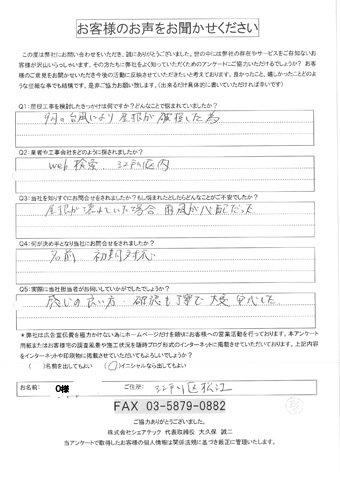 お客様のお声をお聞かせください
この度は弊社にお問い合わせをいただき、誠にありがとうございました。世の中には弊社の存在やサービスをご存知ないお
客様が沢山いらっしゃいます。その方たちに弊社をよく知っていただくためのアンケートにご協力いただけるでしょうか？お客
様のご意見をお聞かせいただき今後の活動に反映させていただきたいと考えております。良かったこと、嬉しかったことどのよ
うな些細な事でも結構です、是非ご協力お願い致します。（出来るだけ具体的に書いていただければ幸いです）
Q1：屋根工事を検討したきっかけは何ですか？どんなことで悩まれていましたか？
9月の台風により屋根が破損した為
Q2：業者や工事会社をどのように探されましたか？
web検索 江戸川区内
Q3：当社を知りすぐにお問合せをされましたか？もし悩まれたとしたらどんなことがご不安でしたか？
屋根が壊れていた場合、雨風が心配だった
Q4：何が決め手となり当社にお問合せをされましたか？
名前 初期対応
Q5：実際に当社担当者がお伺いしていかがでしたでしょうか？
感じの良い方・確認も丁寧で大変安心した。
＊弊社は広告宣伝費を極力かけない為にホームページだけを頼りにお客様への営業活動を行っております。本アンケート
用紙またはお客様宅の調査風景や施工状況を随時ブログ形式のインターネットに掲載させていただいております。上記内容
をインターネットや印刷物に掲載させていただいてもよろしいでしょうか？
（　）名前を出してもよい （○）イニシャルなら出してもよい
お名前： O様 ご住所： 江戸川区松江
FAX 03-5879-0882
ご協力ありがとうございました。
株式会社シェアテック 代表取締役 大久保 誠二
当アンケートで取得したお客様の個人情報は関係法規に基づき厳正に管理いたします。